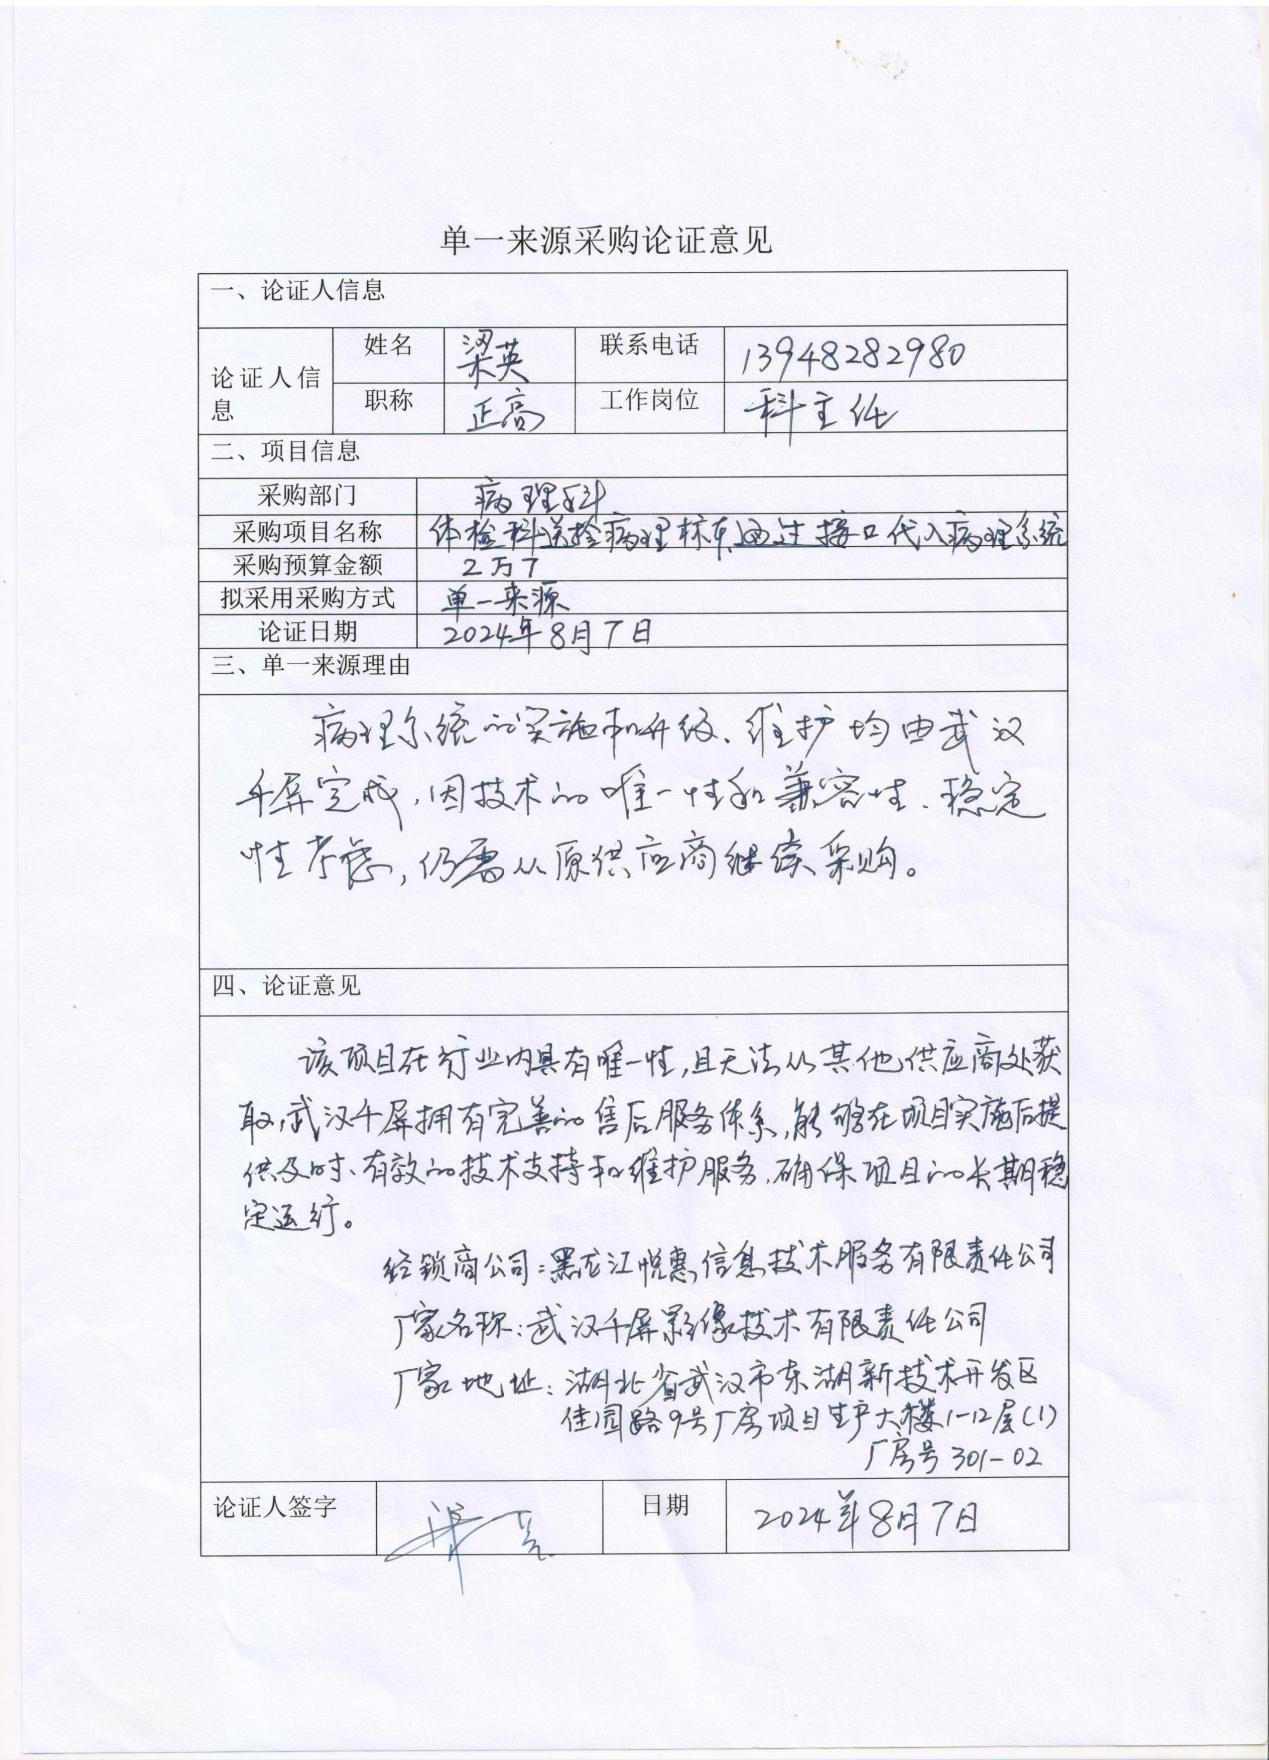 单一来源采购论证意见
一、论证人信息
论证人信息
姓名 梁英 联系电话 13948282980
职称 正高 工作岗位 科主任
二、项目信息
采购部门 病理科
采购项目名称 体检科送检病理标本通过接口代入病理系统
采购预算金额 2万7
拟采用采购方式 单一来源
论证日期 2024年8月7日
三、单一来源理由
病理系统的实施和升级、维护均由武汉
千屏完成,因技术的唯一性和兼容性、稳定
性考虑,仍需从原供应商继续采购。
四、论证意见
该项目在行业内具有唯一性,且无法从其他供应商处获
取,武汉千屏拥有完善的售后服务体系,能够在项目实施后提
供及时、有效的技术支持和维护服务,确保项目的长期稳
定运行。
经销商公司:黑龙江悦惠信息技术服务有限责任公司
厂家名称:武汉千屏影像技术有限责任公司
厂家地址:湖北省武汉市东湖新技术开发区
佳园路9号厂房项目生产大楼1-12层(1)
厂房号301-02
论证人签字 梁英 日期 2024年8月7日